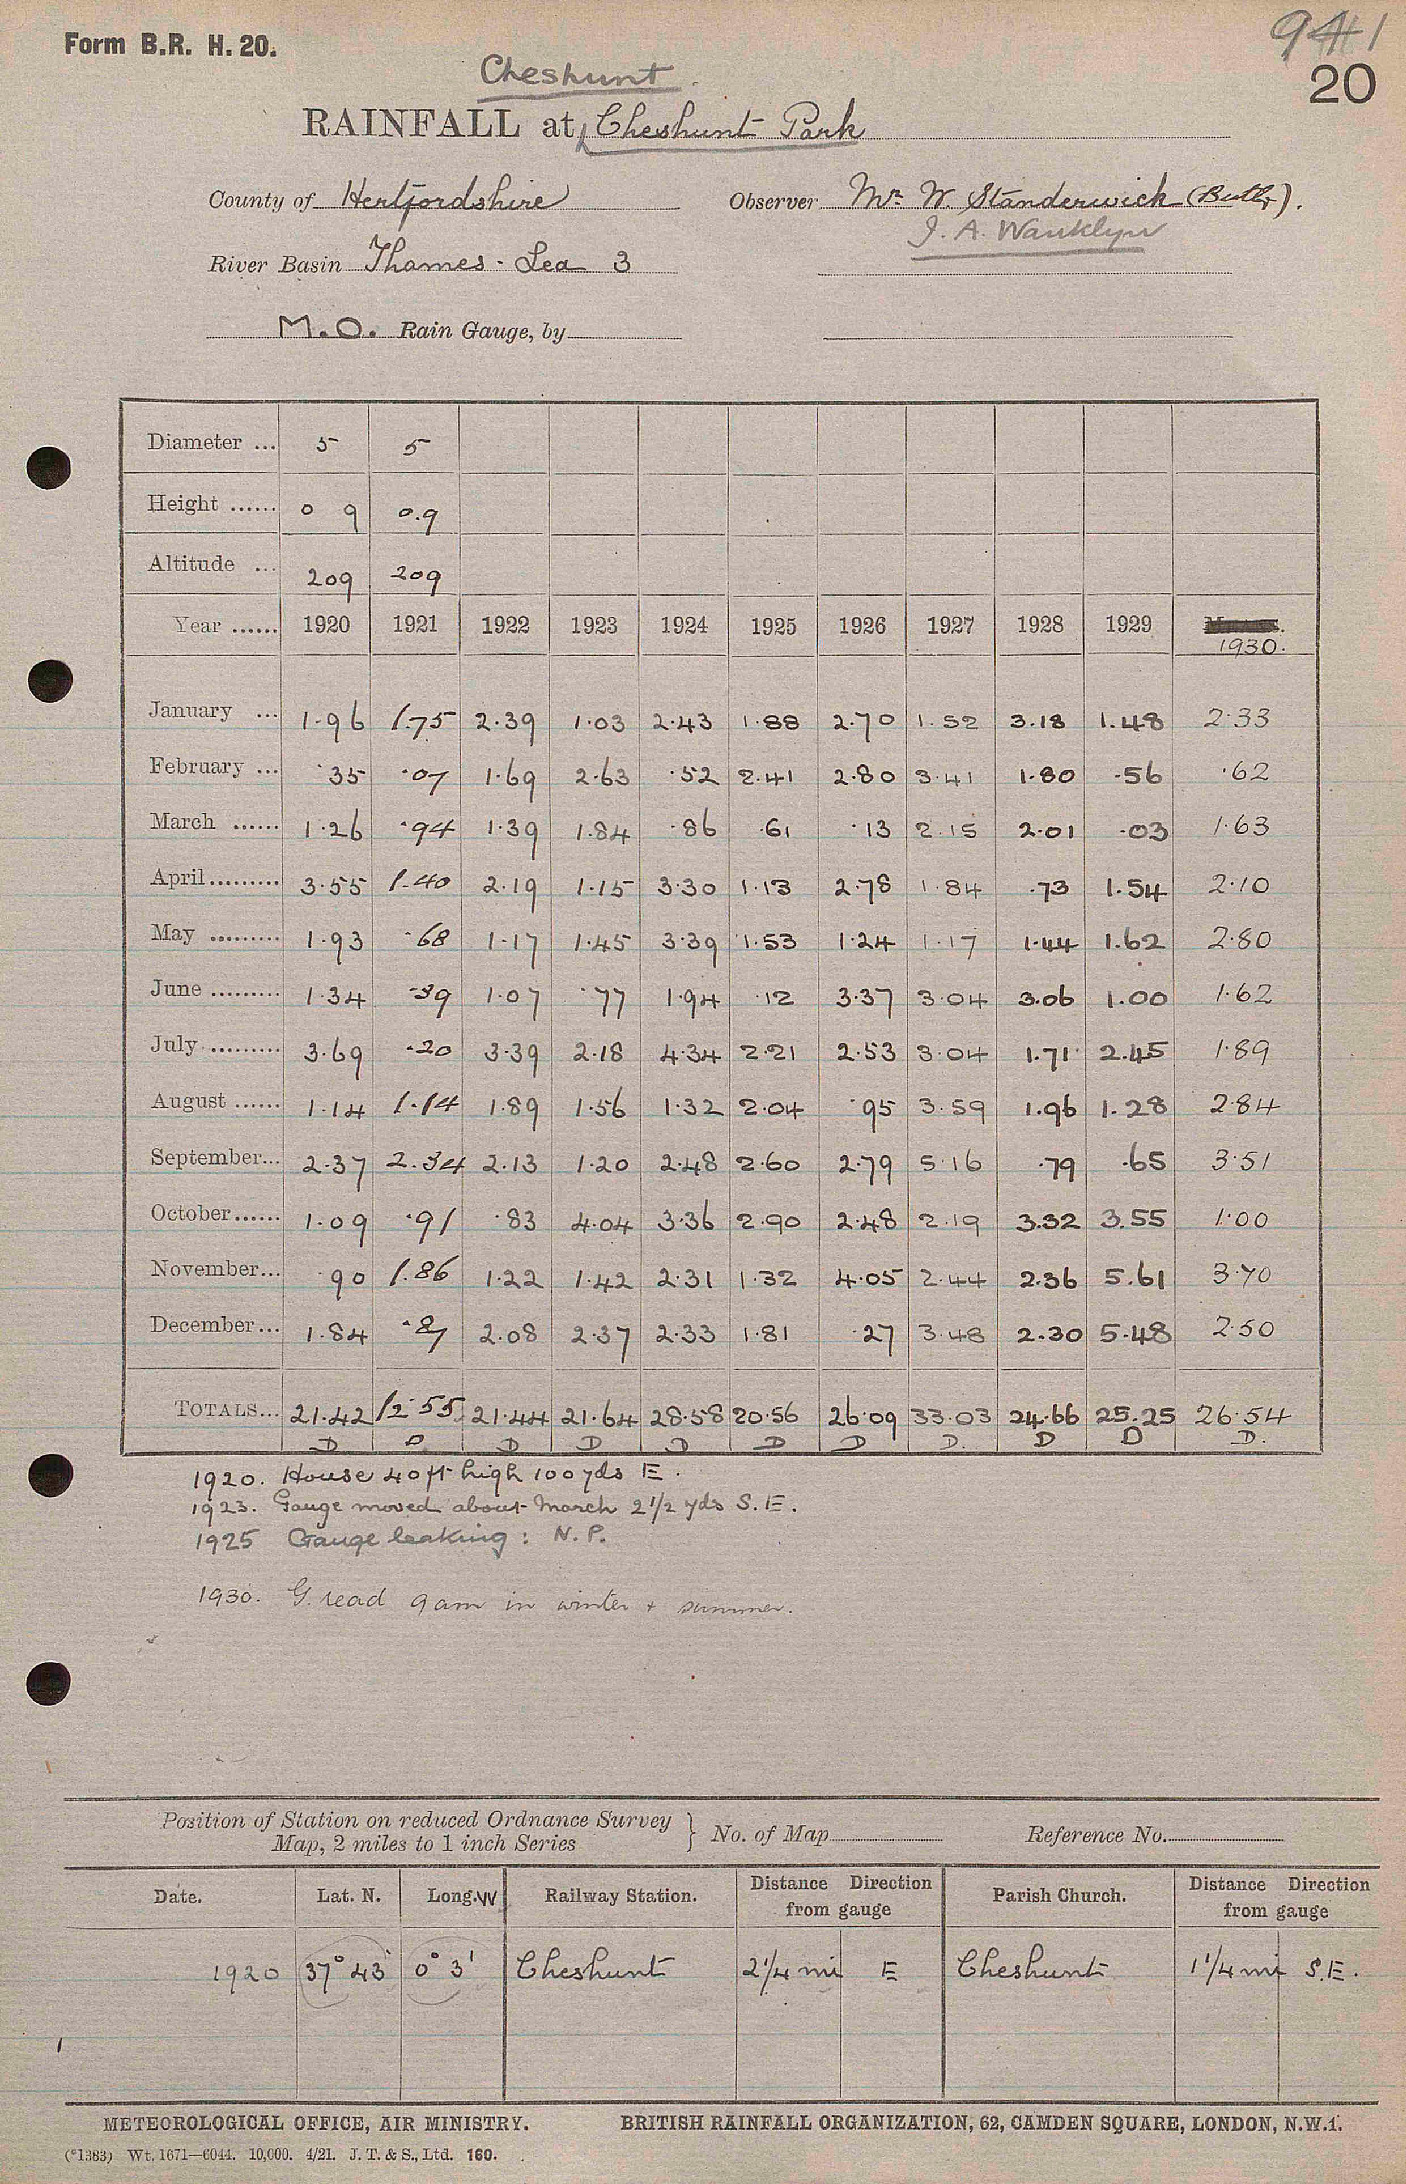 Form B.R. H. 20.
941
20
Cheshunt
RAINFALL at Cheshunt Park
County of Hertfordshire Observer Mr. W. Standerwick (Butler).
J. A. Wanklyn
River Basin Thames - Lea 3
M.O. Rain Gauge, by
Diameter ... 5 5
Height ...... 0 9 0.9
Altitude ... 209 209
Year ...... 1920 1921 1922 1923 1924 1925 1926 1927 1928 1929 1930.
January ... 1.96 1.75 2.39 1.03 2.43 1.88 2.70 1.52 3.18 1.48 2.33
February ... .35 .07 1.69 2.63 .52 2.41 2.80 3.41 1.80 .56 .62
March ...... 1.26 .94 1.39 1.84 .86 .61 .13 2.15 2.01 .03 1.63
April ......... 3.55 1.40 2.19 1.15 3.30 1.13 2.78 1.84 .73 1.54 2.10
May ......... 1.93 .68 1.17 1.45 3.39 1.53 1.24 1.17 1.44 1.62 2.80
June ......... 1.34 .39 1.07 .77 1.94 .12 3.37 3.04 3.06 1.00 1.62
July ......... 3.69 .20 3.39 2.18 4.34 2.21 2.53 3.04 1.71 2.45 1.89
August ...... 1.14 1.14 1.89 1.56 1.32 2.04 .95 3.59 1.96 1.28 2.84
September... 2.37 2.34 2.13 1.20 2.48 2.60 2.79 5.16 .79 .65 3.51
October...... 1.09 .91 .83 4.04 3.36 2.90 2.48 2.19 3.32 3.55 1.00
November... .90 1.86 1.22 1.42 2.31 1.32 4.05 2.44 2.36 5.61 3.70
December... 1.84 .87 2.08 2.37 2.33 1.81 .27 3.48 2.30 5.48 2.50
TOTALS... 21.42 12.55 21.44 21.64 28.58 20.56 26.09 33.03 24.66 25.25 26.54
D D D D D D D D. D D D.
1920. House 40 ft high 100 yds E.
1923. Gauge moved about March 2 1/2 yds S.E.
1925 Gauge leaking: N.P.
1930. G. read 9am in winter + summer.
Position of Station on reduced Ordnance Survey
Map, 2 miles to 1 inch Series } No. of Map Reference No.
Date. Lat. N. Long. W Railway Station. Distance Direction from gauge Parish Church. Distance Direction from gauge
1920 37° 43' 0° 3' Cheshunt 2 1/4 mi E Cheshunt 1 1/4 mi S.E.
METEOROLOGICAL OFFICE, AIR MINISTRY. BRITISH RAINFALL ORGANIZATION, 62, CAMDEN SQUARE, LONDON, N.W.1.
(*1383) Wt. 1671—6044. 10,000. 4/21. J. T. & S., Ltd. 160.